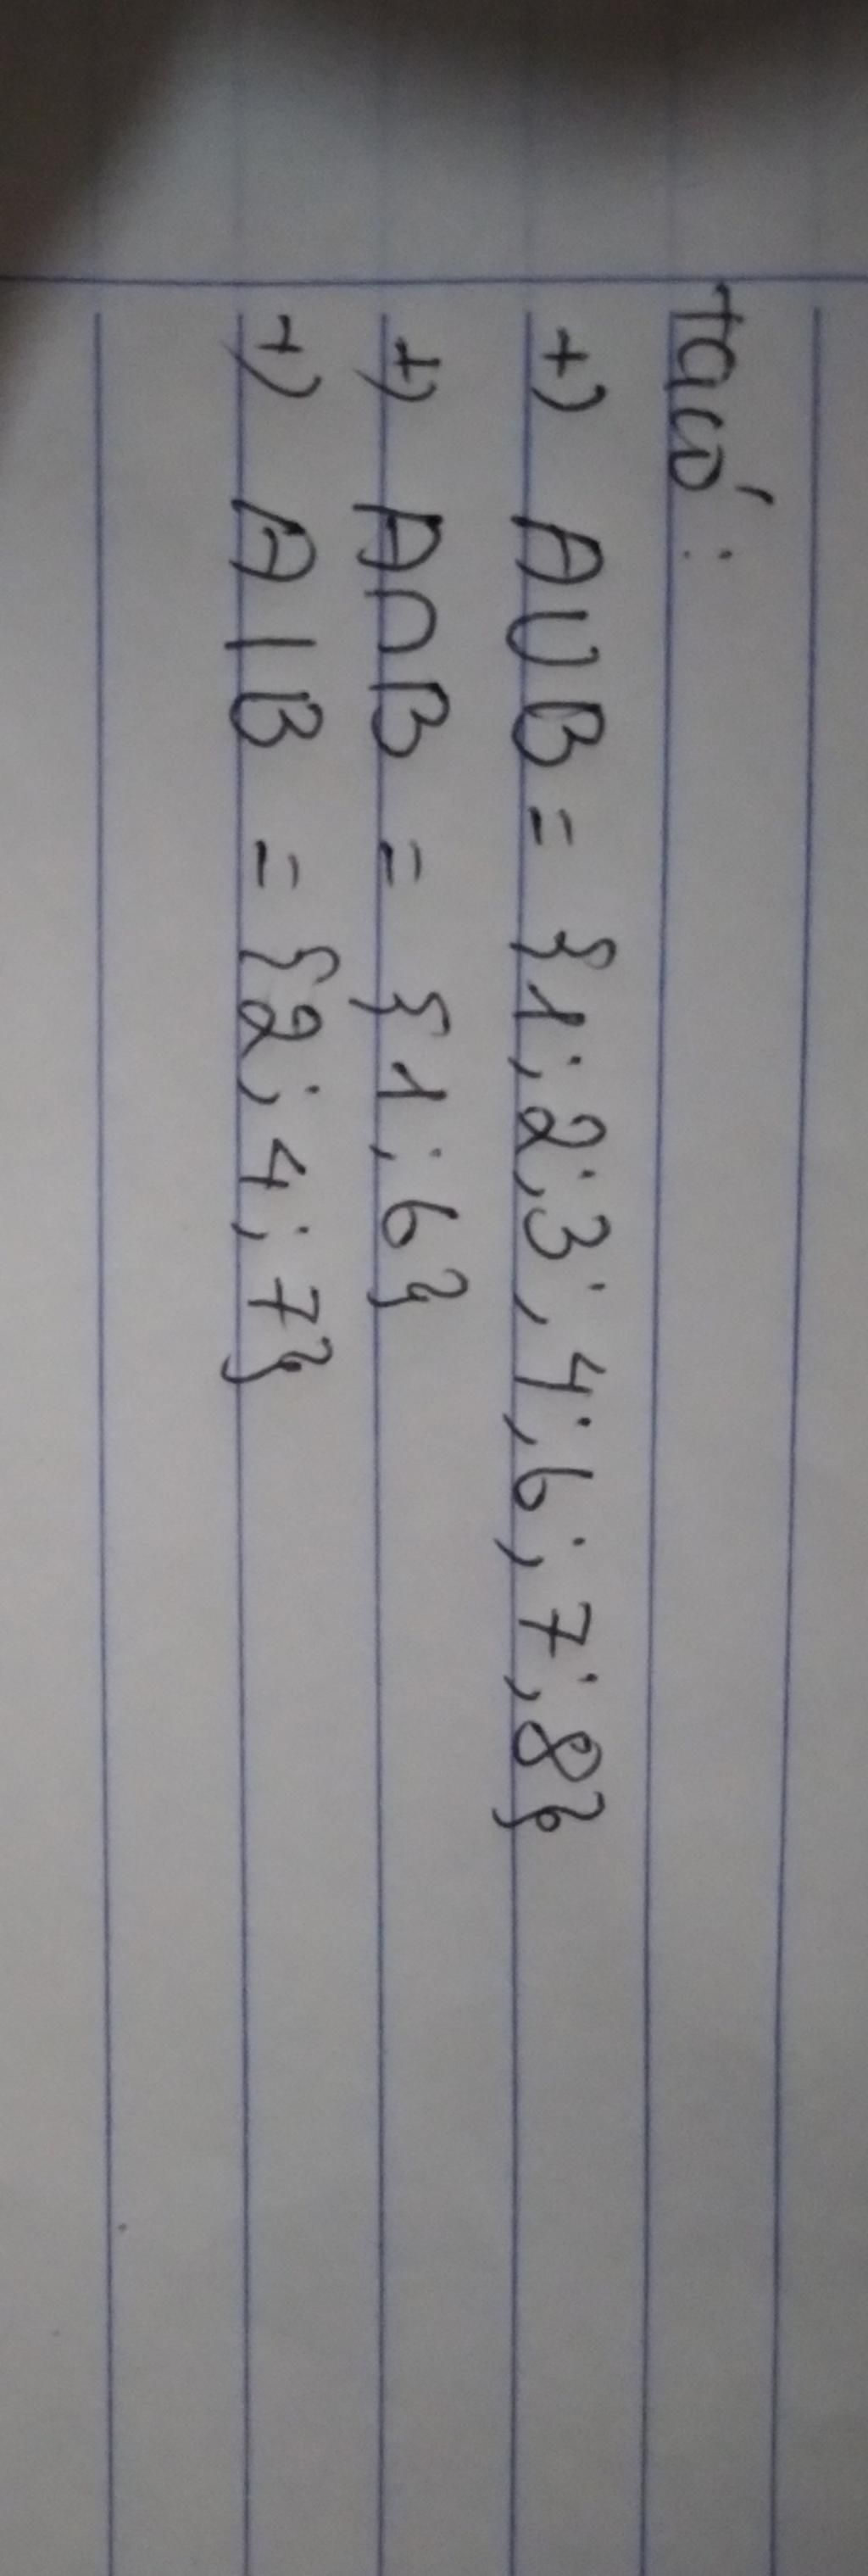 Ta có:
+) A∪B = {1;2;3;4;6;7;8}
+) A∩B = {1;6}
+) A|B = {2;4;7}